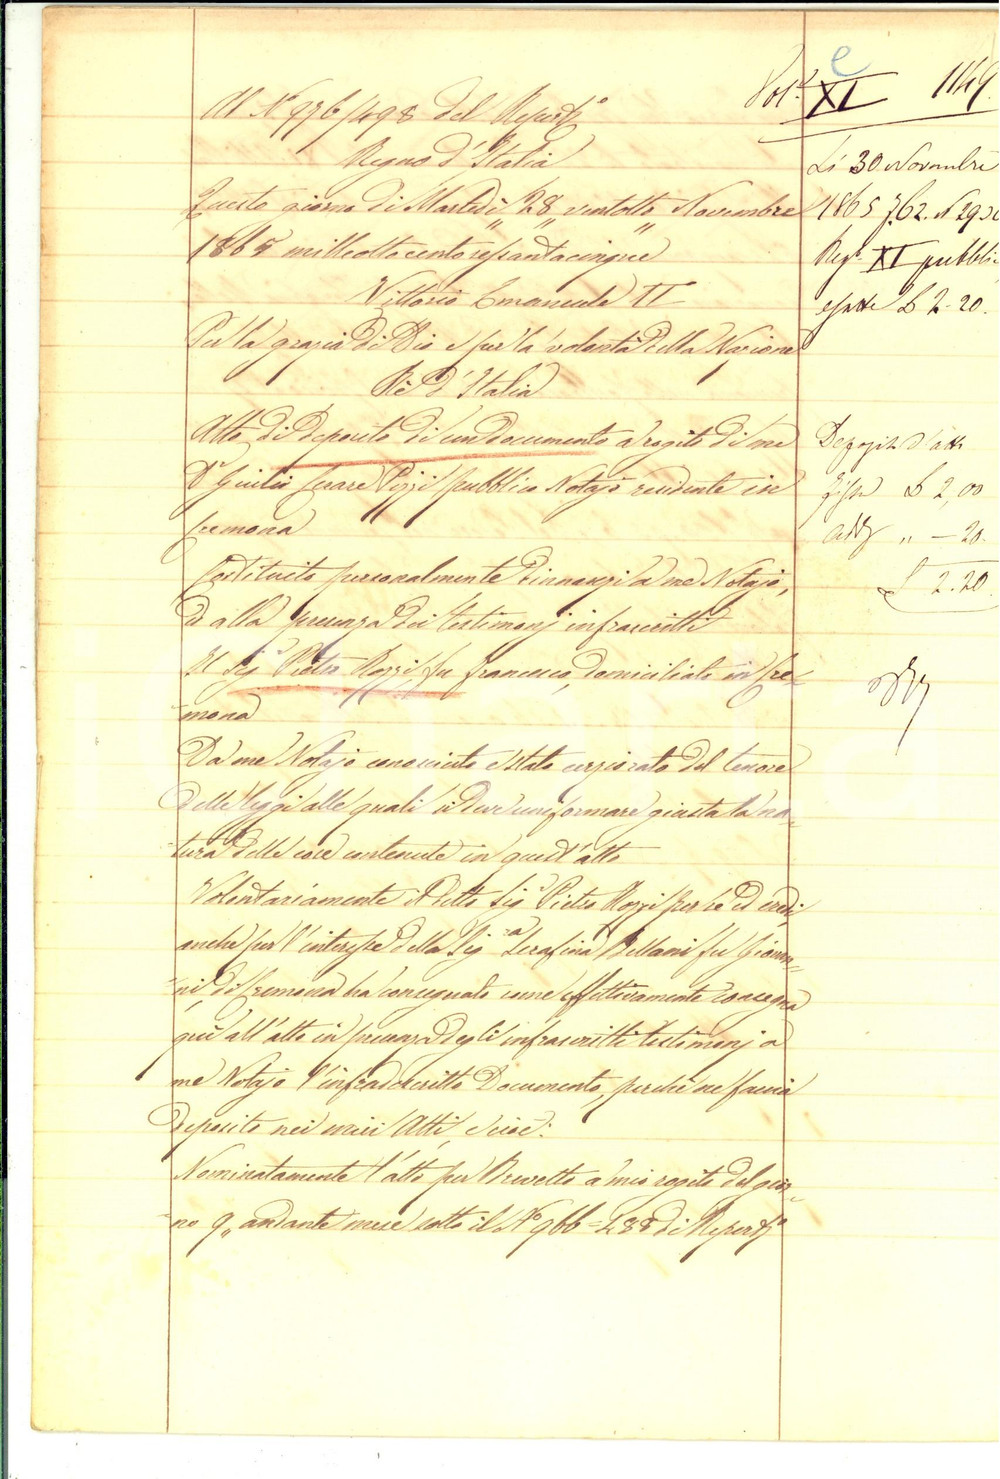 Vol.e XI 1149
Al N° 996/498 del Repert°
Regno d'Italia
Questo giorno di Martedì 28 ventotto Novembre
1865 milleottocentosessantacinque
Vittorio Emanuele II
Per la grazia di Dio e per la volontà della Nazione
Rè d'Italia
Atto di Deposito di un Documento a rogito di me
Dr Giulio Cesare Pizzi pubblico Notajo residente in
Cremona
Costituito personalmente dinnanzi a me Notajo,
ed alla presenza dei testimonj infrascritti
Il Sigr Pietro Rozzi, fu Francesco, domiciliato in Cre=
=mona
Da me Notajo conosciuto e stato cerziorato del tenore
delle leggi alle quali si deve uniformare giusta la na=
tura delle cose contenute in quest'atto
Volontariamente il detto Sigr Pietro Rozzi per se ed eredi,
anche per l'interesse della Sigra Serafina Bellani fu Giovan=
=ni, di Cremona ha consegnato come effettivamente consegna
quì all'atto in presenza degli infrascritti testimonj a
me Notajo l'infradescritto Documento, perchè ne faccia
deposito nei miei Atti, e cioè:
Nominatamente l'atto per Brevetto a mio rogito del gior=
=no 9 andante mese sotto il N° 966=488 di Repert°
Li 30 Novembre
1865 f. 62. N 29
Regº XI pubblici
esatte £ 2.20.
Deposito d'atti
fisso £ 2,00
add " — 20.
£ 2.20.